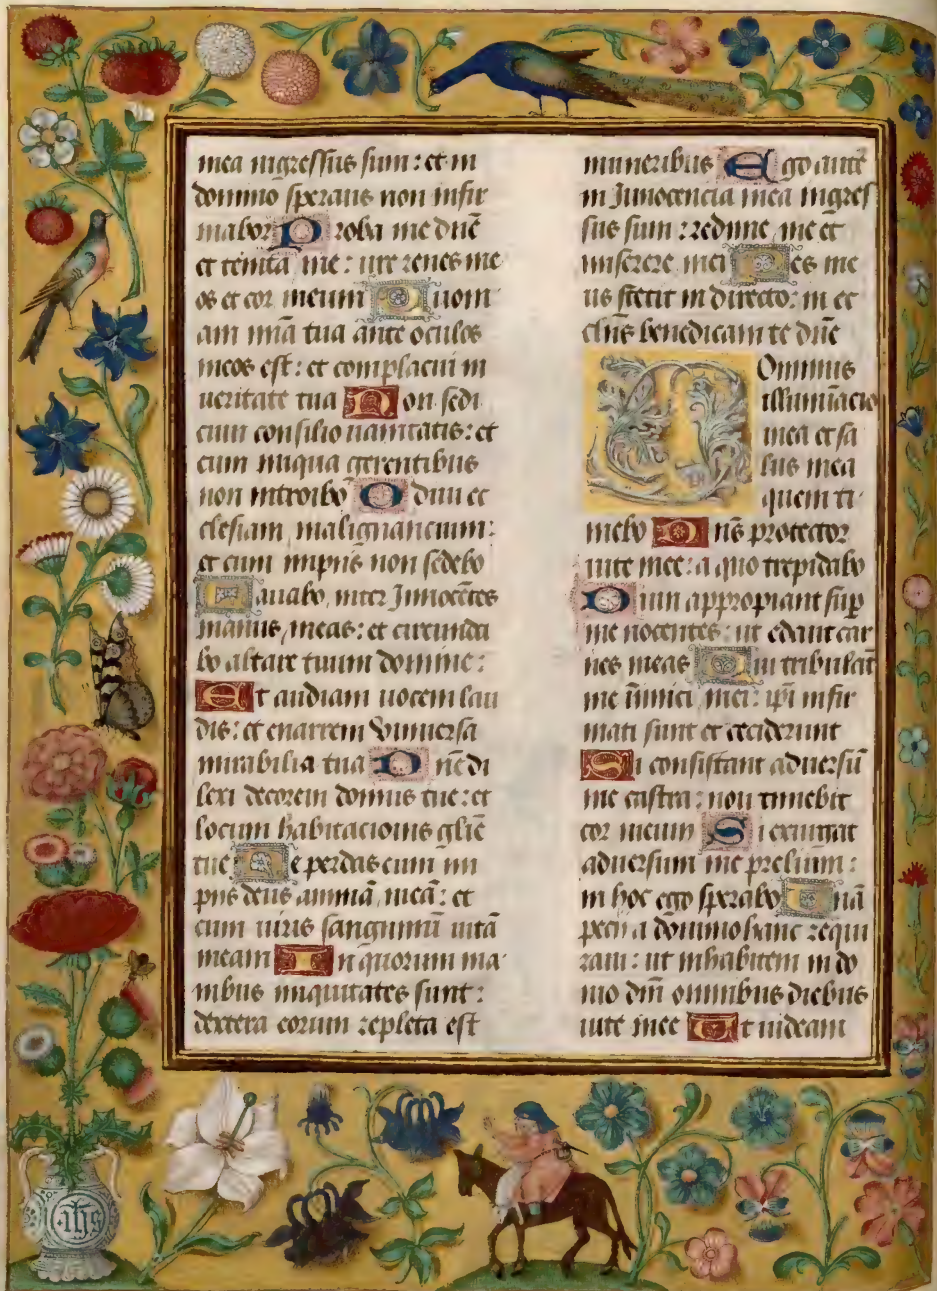 mea ingressus sum: et in
domino sperans non infir
mabor Proba me dn̄e
et tēnta me: ure renes me
os et cor meum Quoni
am mīa tua ante oculos
meos est: et complacui in
veritate tua Non sedi
cum consilio vanitatis: et
cum iniqua gerentibus
non introibo Odiui ec
clesiam malignancium:
et cum impiis non sedebo
Lauabo inter Innocētes
manus meas: et circumda
bo altare tuum domine:
Ut audiam uocem lau
dis: et enarrem Vniuersa
mirabilia tua Dn̄e di
lexi decorem domus tue: et
locum habitacionis glīe
tue Ne perdas cum im
piis deus animā meā: et
cum uiris sanguinū uitā
meam In quorum ma
nibus iniquitates sunt:
dextera eorum repleta est
muneribus Ego autē
in Innocencia mea ingres
sus sum: redime me et
miserere mei Pes me
us stetit in directo: in ec
clīis benedicam te dn̄e
Dominus
illuminacio
mea et sa
lus mea
quem ti
mebo Dn̄s protector
uite mee: a quo trepidabo
Dum appropiant sup̄
me nocentes: ut edant car
nes meas Qui tribulant
me inimici mei: ip̄i infir
mati sunt et ceciderunt
Si consistant aduersū
me castra: non timebit
cor meum Si exurgat
aduersum me prelium:
in hoc ego sperabo Unā
pecii a domino hanc requi
ram: ut inhabitem in do
mo dn̄i omnibus diebus
uite mee Ut uideam
ihs